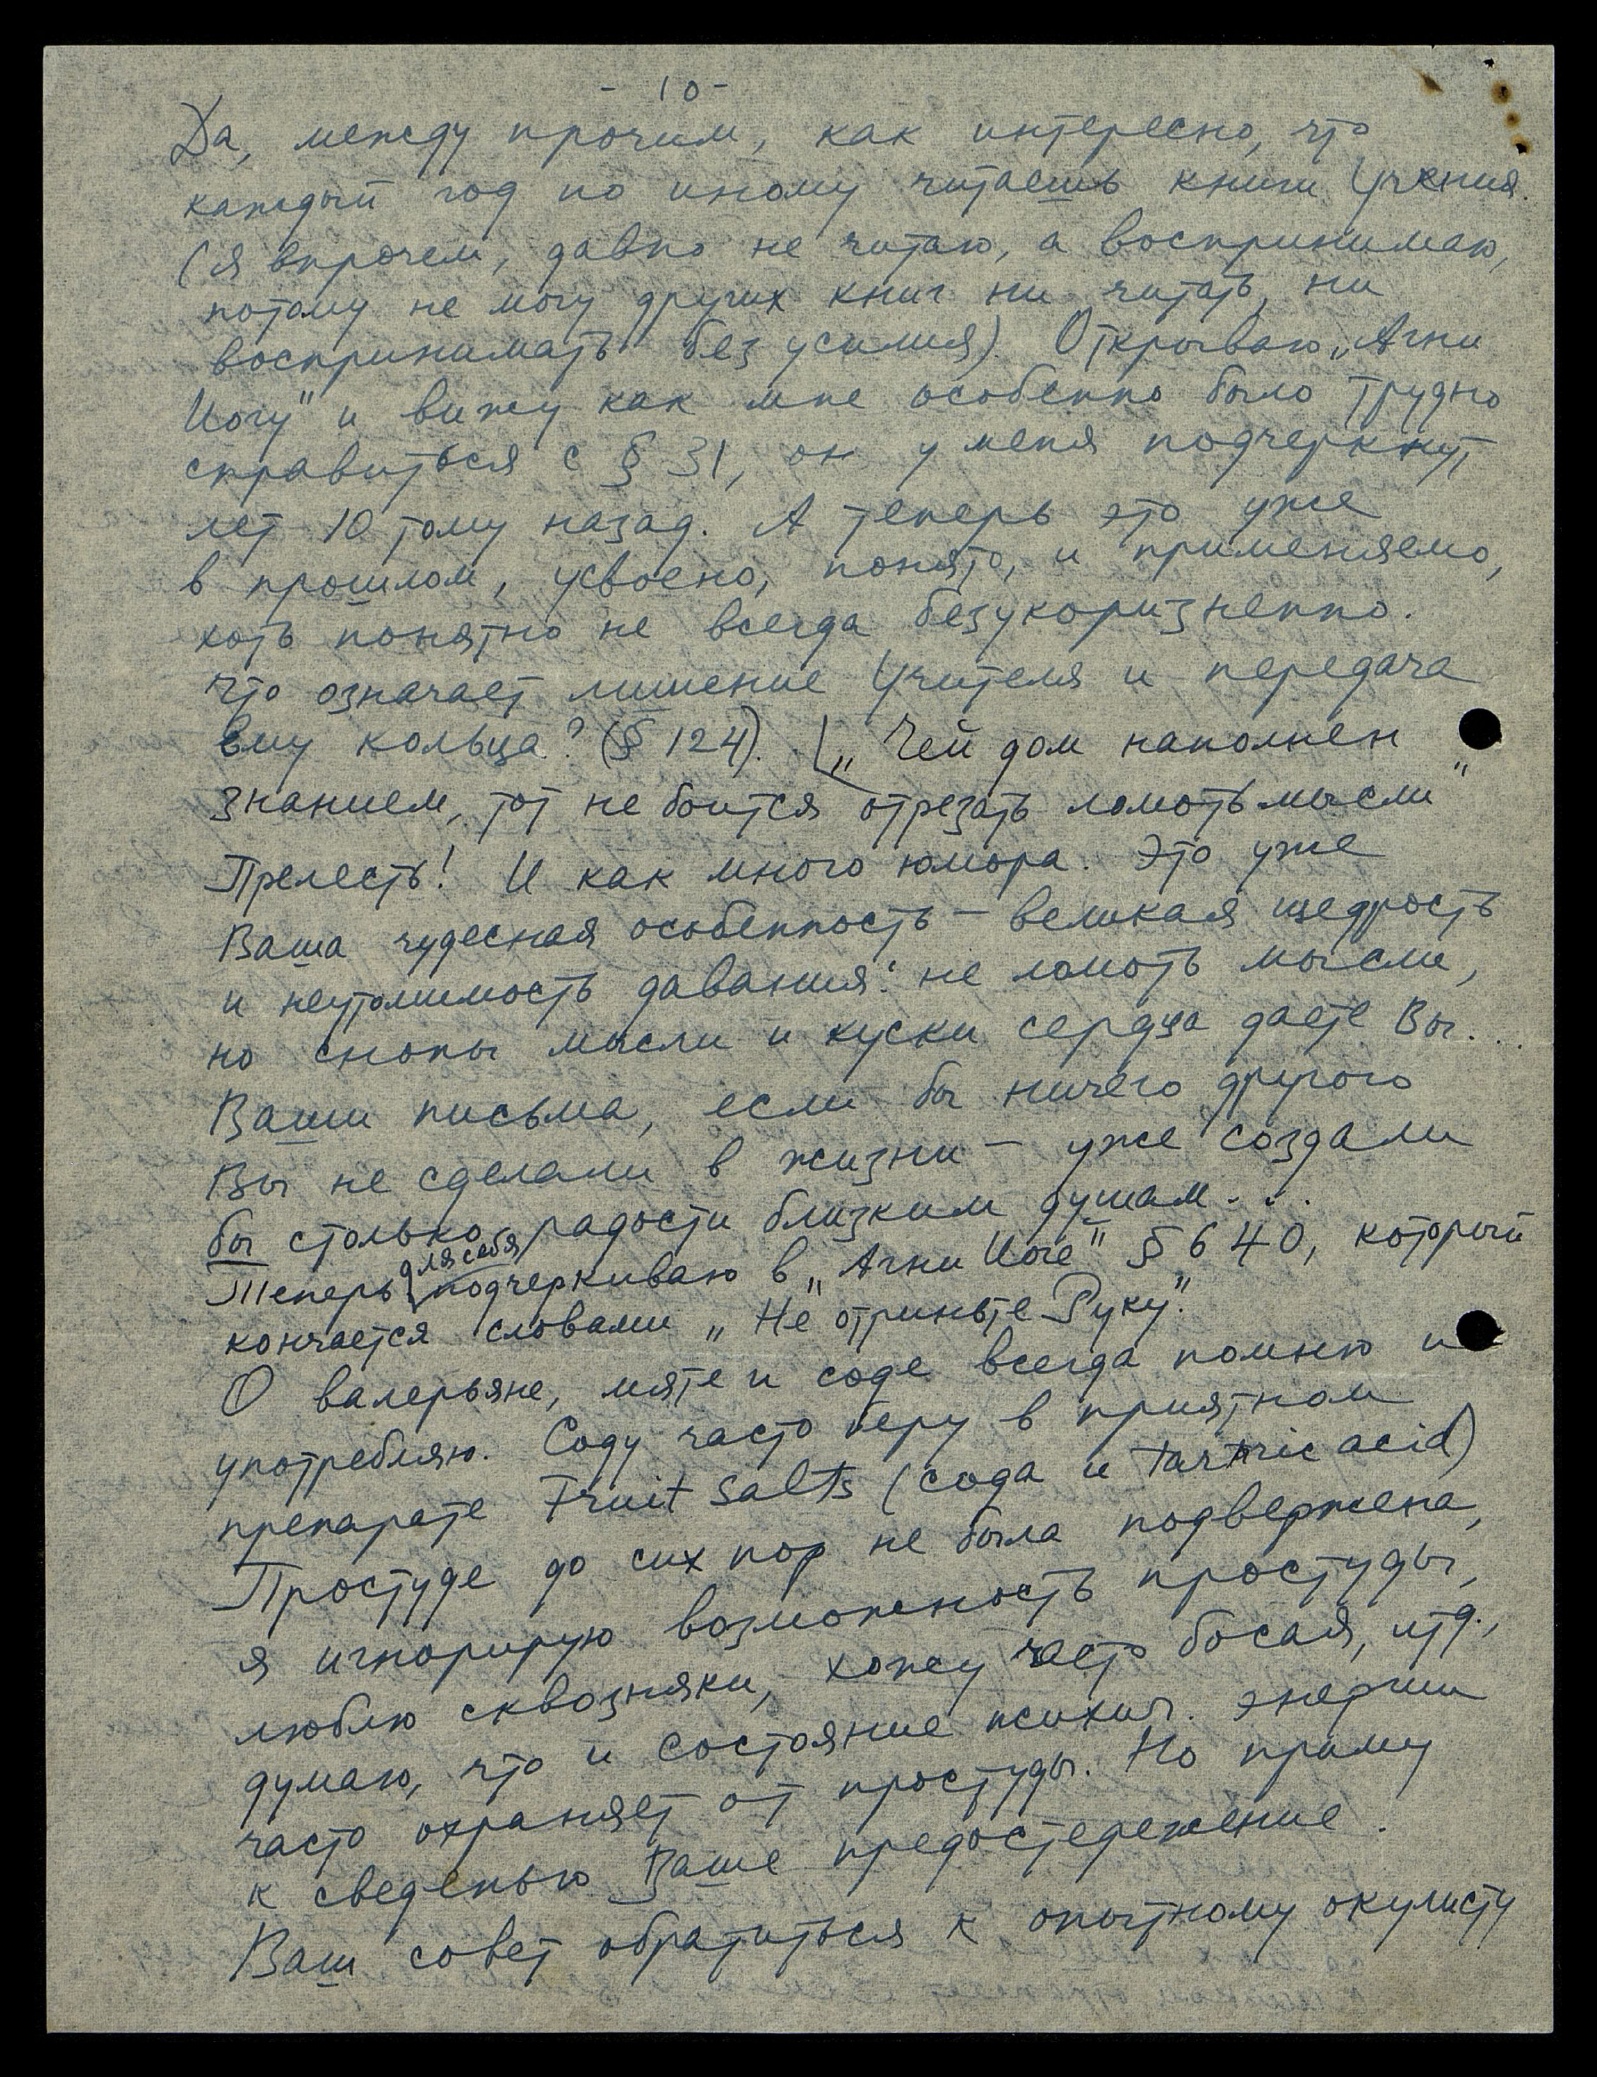 - 10 -
Да, между прочим, как интересно, что
каждый год по иному читаешь книги Учения.
(я впрочем, давно не читаю, а воспринимаю,
потому не могу других книг ни читать, ни
воспринимать без усилия). Открываю „Агни
Йогу" и вижу как мне особенно было трудно
справиться с § 31, он у меня подчеркнут
лет 10 тому назад. А теперь это уже
в прошлом, усвоено, понято, и применяемо,
хоть понятно не всегда безукоризненно.
Что означает лишение Учителя и передача
ему кольца? (§ 124). „Чей дом наполнен
знанием, тот не боится отрезать ломоть мысли"
Прелесть! И как много юмора. Это уже
Ваша чудесная особенность – великая щедрость
и неутолимость давания: не ломоть мысли,
но снопы мысли и куски сердца даете Вы...
Ваши письма, если бы ничего другого
Вы не сделали в жизни – уже создали
бы столько радости близким душам...
Теперь для себя подчеркиваю в „Агни Йоге" § 640, который
кончается словами „Не отриньте Руку".
О валерьяне, мяте и соде всегда помню и
употребляю. Соду часто беру в приятном
препарате Fruit Salts (сода и tartric acid)
Простуде до сих пор не была подвержена,
я игнорирую возможность простуды,
люблю сквозняки, хожу часто босая, итд.,
думаю, что и состояние психич. энергии
часто охраняет от простуды. Но приму
к сведенью Ваше предостережение.
Ваш совет обратиться к опытному окулисту